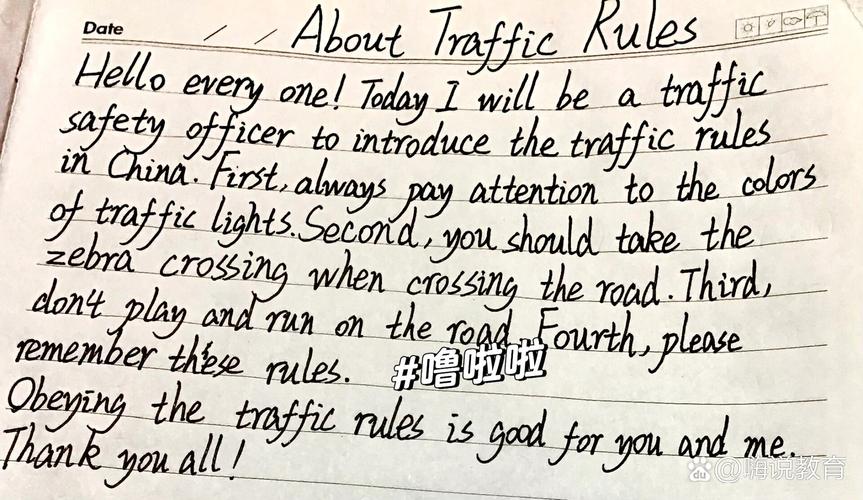 Date / / About Traffic Rules
Hello every one! Today I will be a traffic
safety officer to introduce the traffic rules
in China. First, always pay attention to the colors
of traffic lights. Second, you should take the
zebra crossing when crossing the road. Third,
don't play and run on the road. Fourth, please
remember these rules.
#噜啦啦
Obeying the traffic rules is good for you and me.
Thank you all!
@嗨说教育